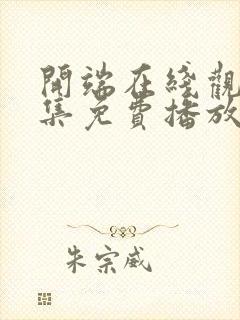 開端在綫觀
集免費播放
朱宗威